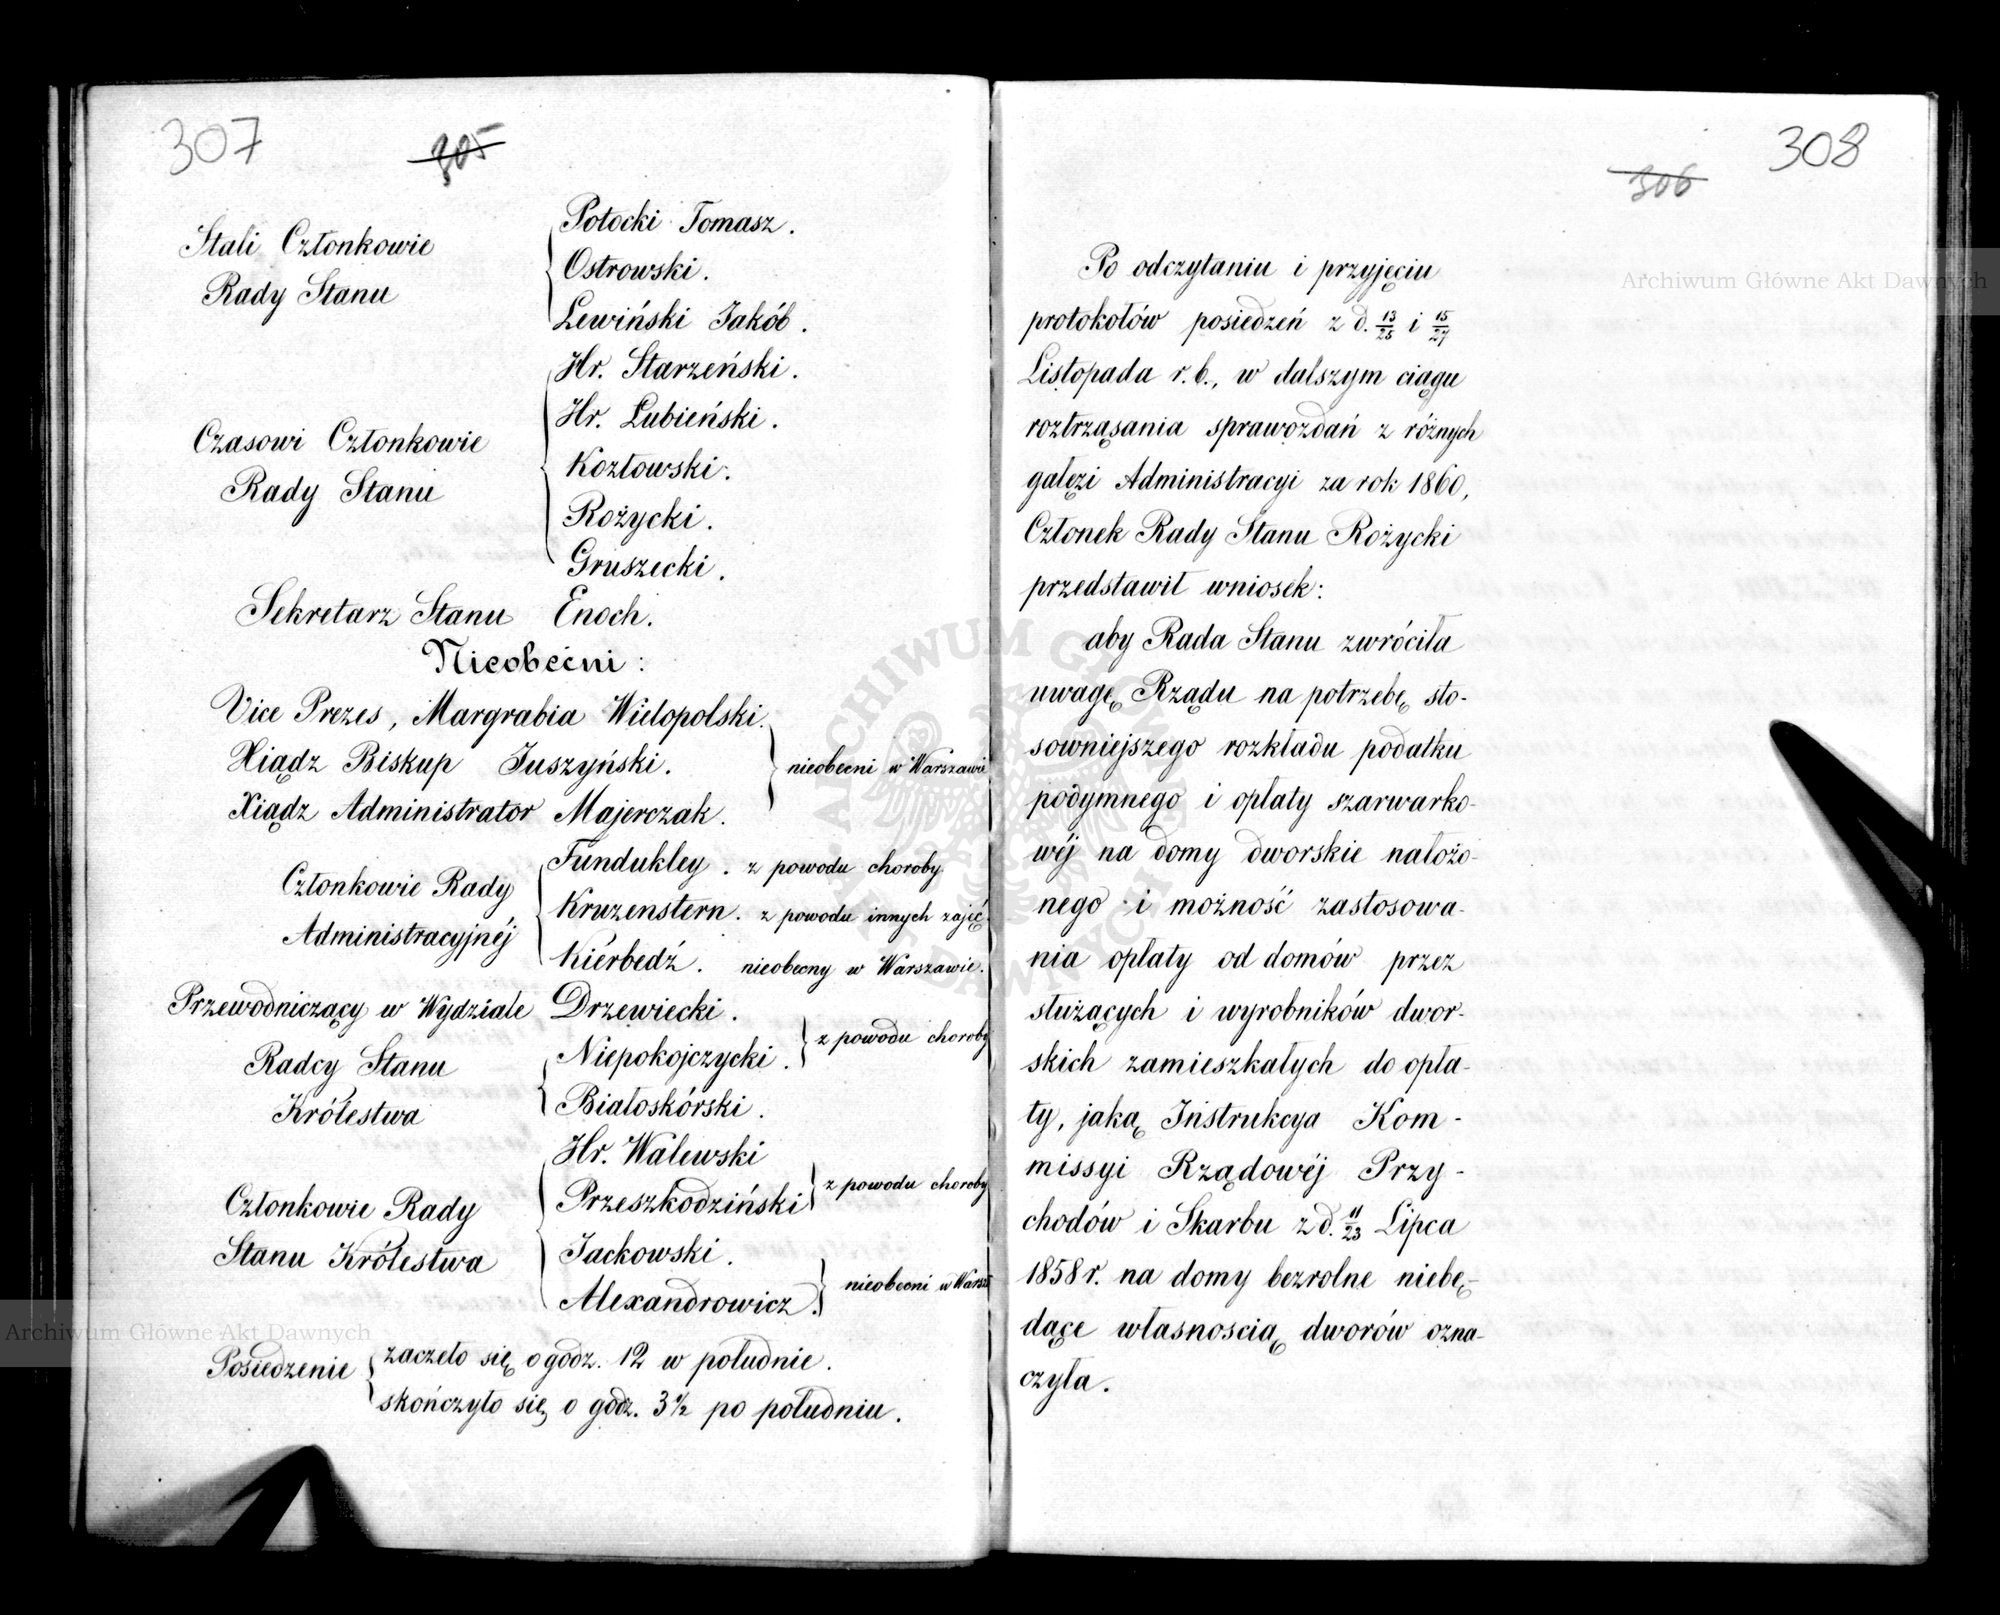 307
305
Stali Członkowie
Rady Stanu
Potocki Tomasz.
Ostrowski.
Lewiński Jakób.
Czasowi Członkowie
Rady Stanu
Hr. Starzeński.
Hr. Łubieński.
Kozłowski.
Rożycki.
Gruszecki.
Sekretarz Stanu Enoch.
Nieobecni:
Vice Prezes, Margrabia Wielopolski.
Xiądz Biskup Juszyński.
Xiądz Administrator Majerczak.
nieobecni w Warszawie
Członkowie Rady
Administracyjnéj
Fundukley. z powodu choroby
Kruzenstern. z powodu innych zajęć.
Kierbedź. nieobecny w Warszawie.
Przewodniczący w Wydziale Drzewiecki.
Radcy Stanu
Królestwa
Niepokojczycki.
Białoskórski.
z powodu choroby
Członkowie Rady
Stanu Królestwa
Hr. Walewski
Przeszkodziński
z powodu choroby
Jackowski.
Alexandrowicz.
nieobecni w Warsz
Posiedzenie
zaczeło się o godz. 12 w południe.
skończyło się o godz. 3 1/2 po południu.
308
306
Po odczytaniu i przyjęciu
protokołów posiedzeń z d. 13/25 i 15/27
Listopada r. b., w dalszym ciągu
roztrząsania sprawozdań z różnych
gałęzi Administracyi za rok 1860,
Członek Rady Stanu Rożycki
przedstawił wniosek:
aby Rada Stanu zwróciła
uwagę Rządu na potrzebę sto-
sowniejszego rozkładu podatku
podymnego i opłaty szarwarko-
wéj na domy dworskie nałożo-
nego i możność zastosowa-
nia opłaty od domów przez
służących i wyrobników dwor-
skich zamieszkałych do opła-
ty, jaką Instrukcya Kom-
missyi Rządowéj Przy-
chodów i Skarbu z d. 11/23 Lipca
1858 r. na domy bezrolne niebę-
dące własnoscią dworów ozna-
czyła.
Archiwum Główne Akt Dawnych
Archiwum Główne Akt Dawnych
ARCHIWUM GŁÓWNE AKT DAWNYCH